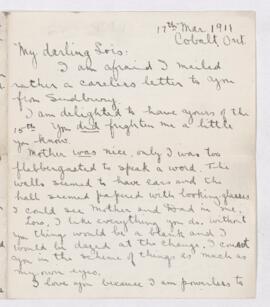 17th Mar 1911
Cobalt, Ont.
My darling Lois:
I am afraid I mailed
rather a careless letter to you
from Sudbury.
I am delighted to have yours of the
15th. You did frighten me a little
you know.
Mother was nice, only I was too
flabbergasted to speak a word. The
walls seemed to have ears and the
hall seemed papered with looking glasses
I could see Mother and Dad in me.
Lois, I like everything you do, without
you things would be a blank and I
would be dazed at the change. I count
you in the scheme of things as much as
my own eyes.
I love you because I am powerless to